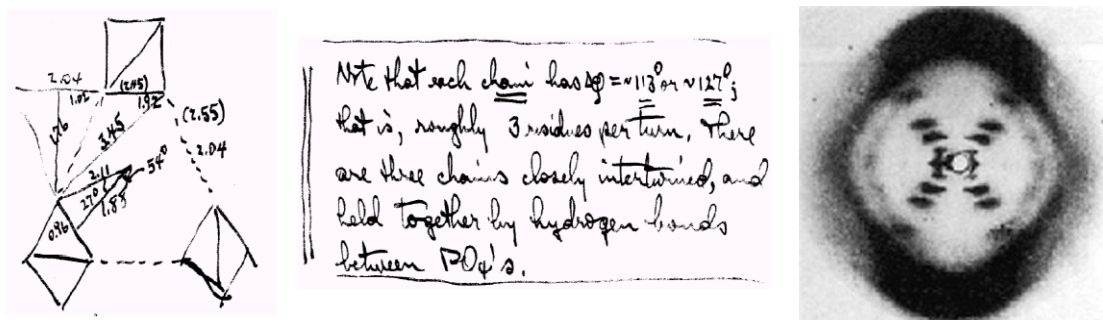 2.04
(2.45)
1.02
1.92
(2.55)
3.45
2.04
2.11
54°
1.88
0.96
Note that each chain has Δφ = ~113° or ~127°;
that is, roughly 3 residues per turn. There
are three chains closely intertwined, and
held together by hydrogen bonds
between PO₄'s.